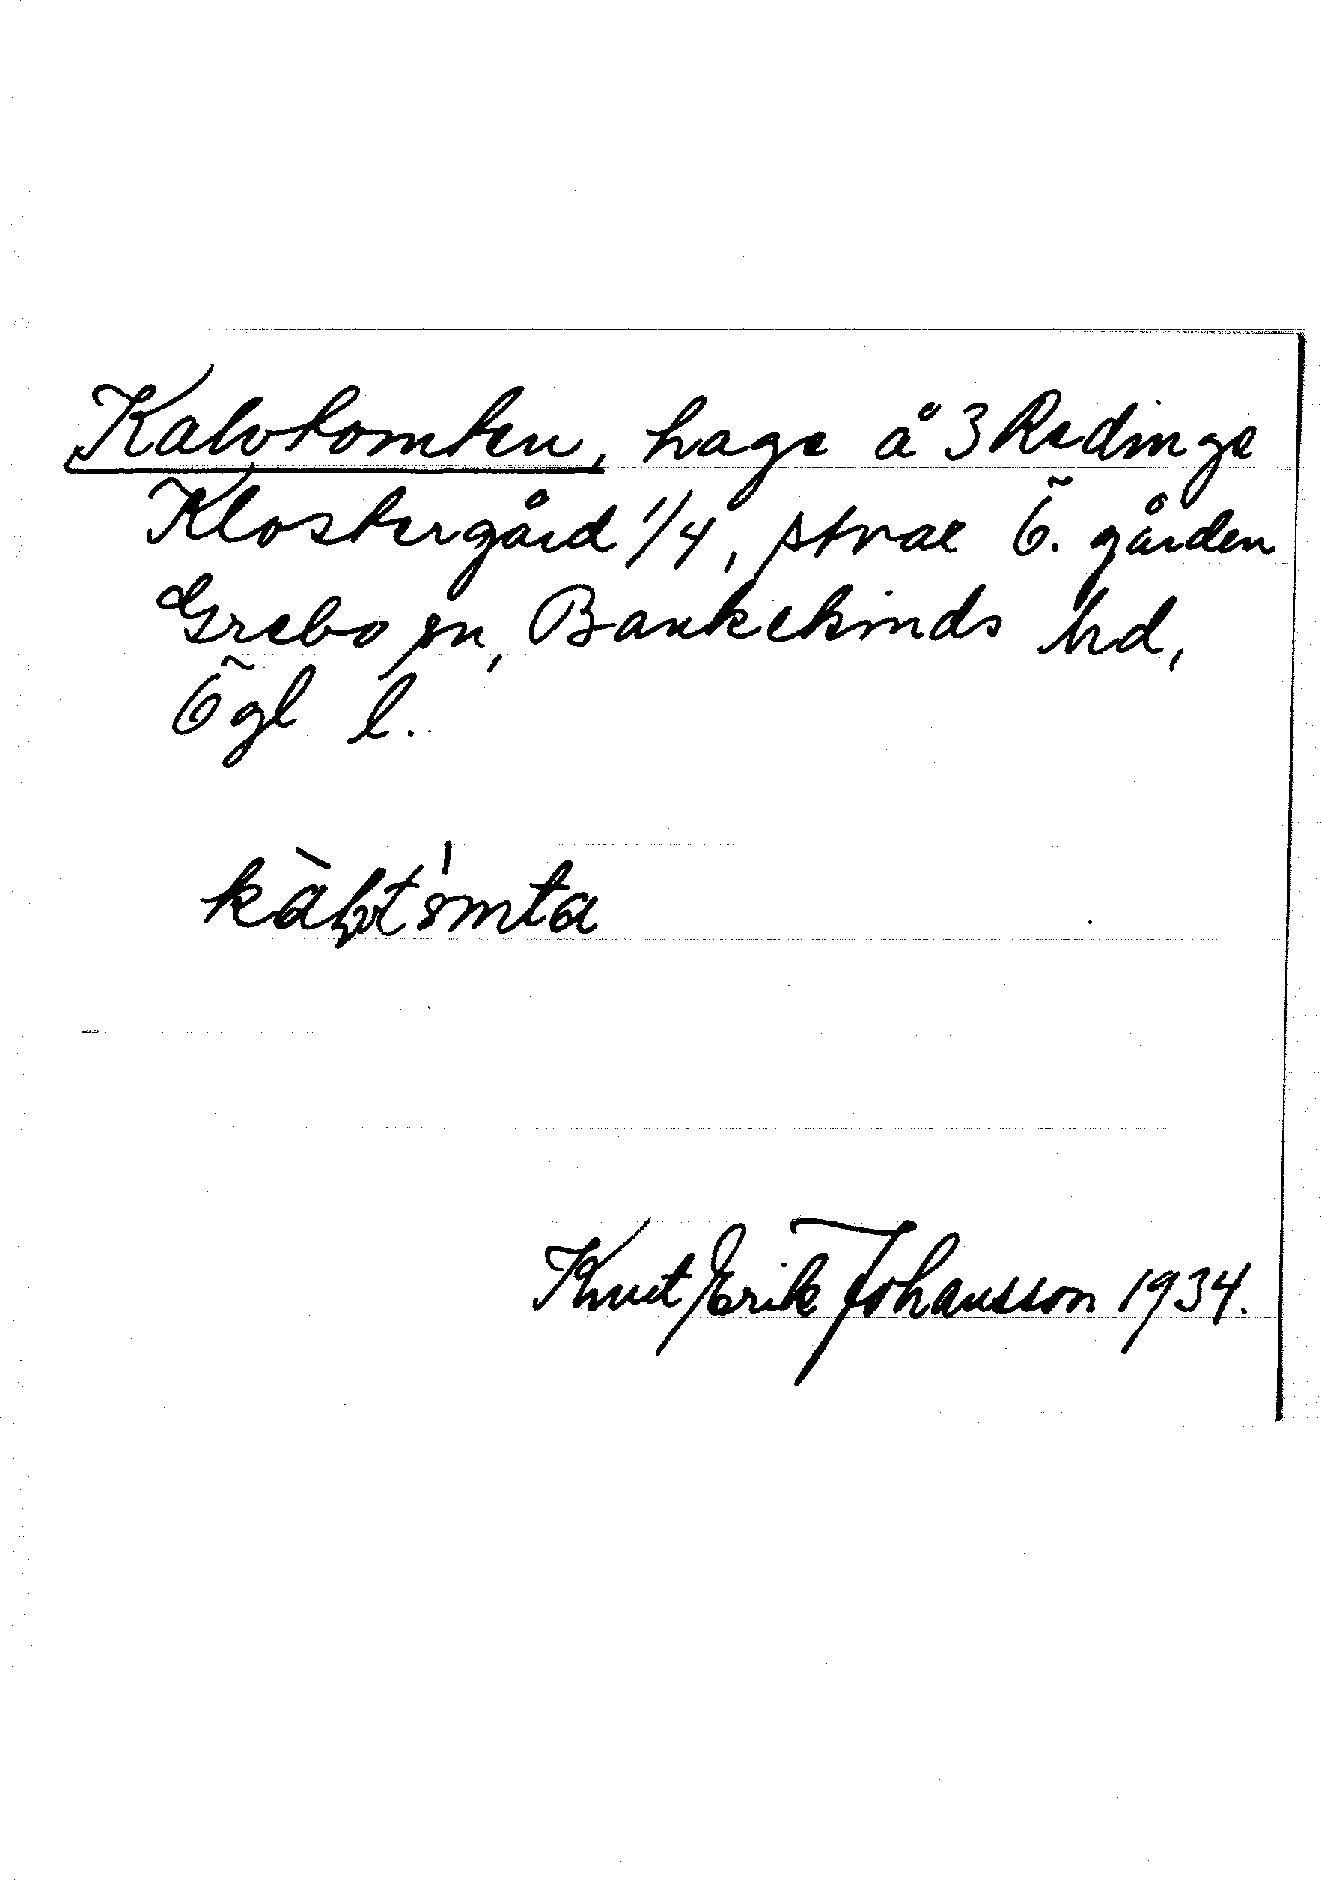 Kalvtomten, hage å 3 Redinge
Klostergård 1/4, Ö. gården
Grebo sn, Bankekinds hd,
Ögl l.
Knut Erik Johansson 1934.